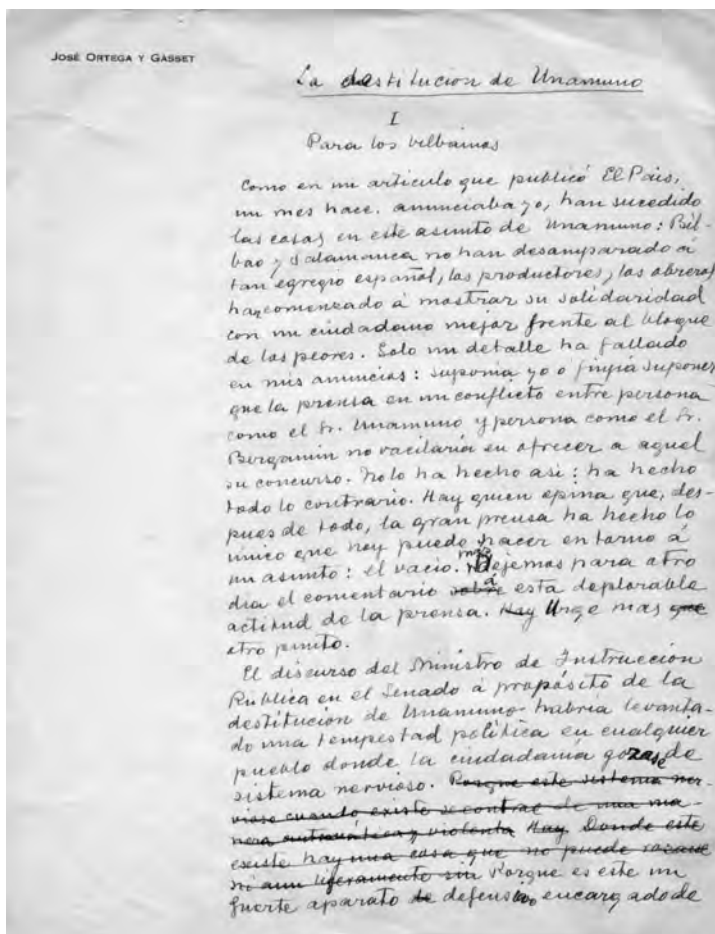 JOSÉ ORTEGA Y GASSET
La destitucion de Unamuno
I
Para los bilbainos
Como en un artículo que publicó El País,
un mes hace. anunciaba yo, han sucedido
las cosas en este asunto de Unamuno: Bil-
bao y Salamanca no han desamparado á
tan egregio español, los productores, los obreros
han comenzado á mostrar su solidaridad
con un ciudadano mejor frente al bloque
de los peores. Solo un detalle ha fallado
en mis anuncios: suponía yo o fingía suponer
que la prensa en un conflicto entre persona
como el Sr. Unamuno y persona como el Sr.
Bergamin no vacilaría en ofrecer a aquel
su concurso. No lo ha hecho asi: ha hecho
todo lo contrario. Hay quien opina que, des-
pues de todo, la gran prensa ha hecho lo
único que hoy puede hacer en torno á
un asunto: el vacio. Dejemos para otro
dia el comentario sobre á esta deplorable
actitud de la prensa. Hay Urge mas que
otro punto.
El discurso del Ministro de Instrucción
Publica en el Senado á propósito de la
destitución de Unamuno habría levanta-
do una tempestad política en cualquier
pueblo donde la ciudadanía gozase de
sistema nervioso. Porque este sistema ner-
vioso cuando existe se contrae de una ma-
nera automática y violenta Hay. Donde este
existe hay una cosa que no puede
ni aun ligeramente sin Porque es este un
fuerte aparato de defensivo encargado de